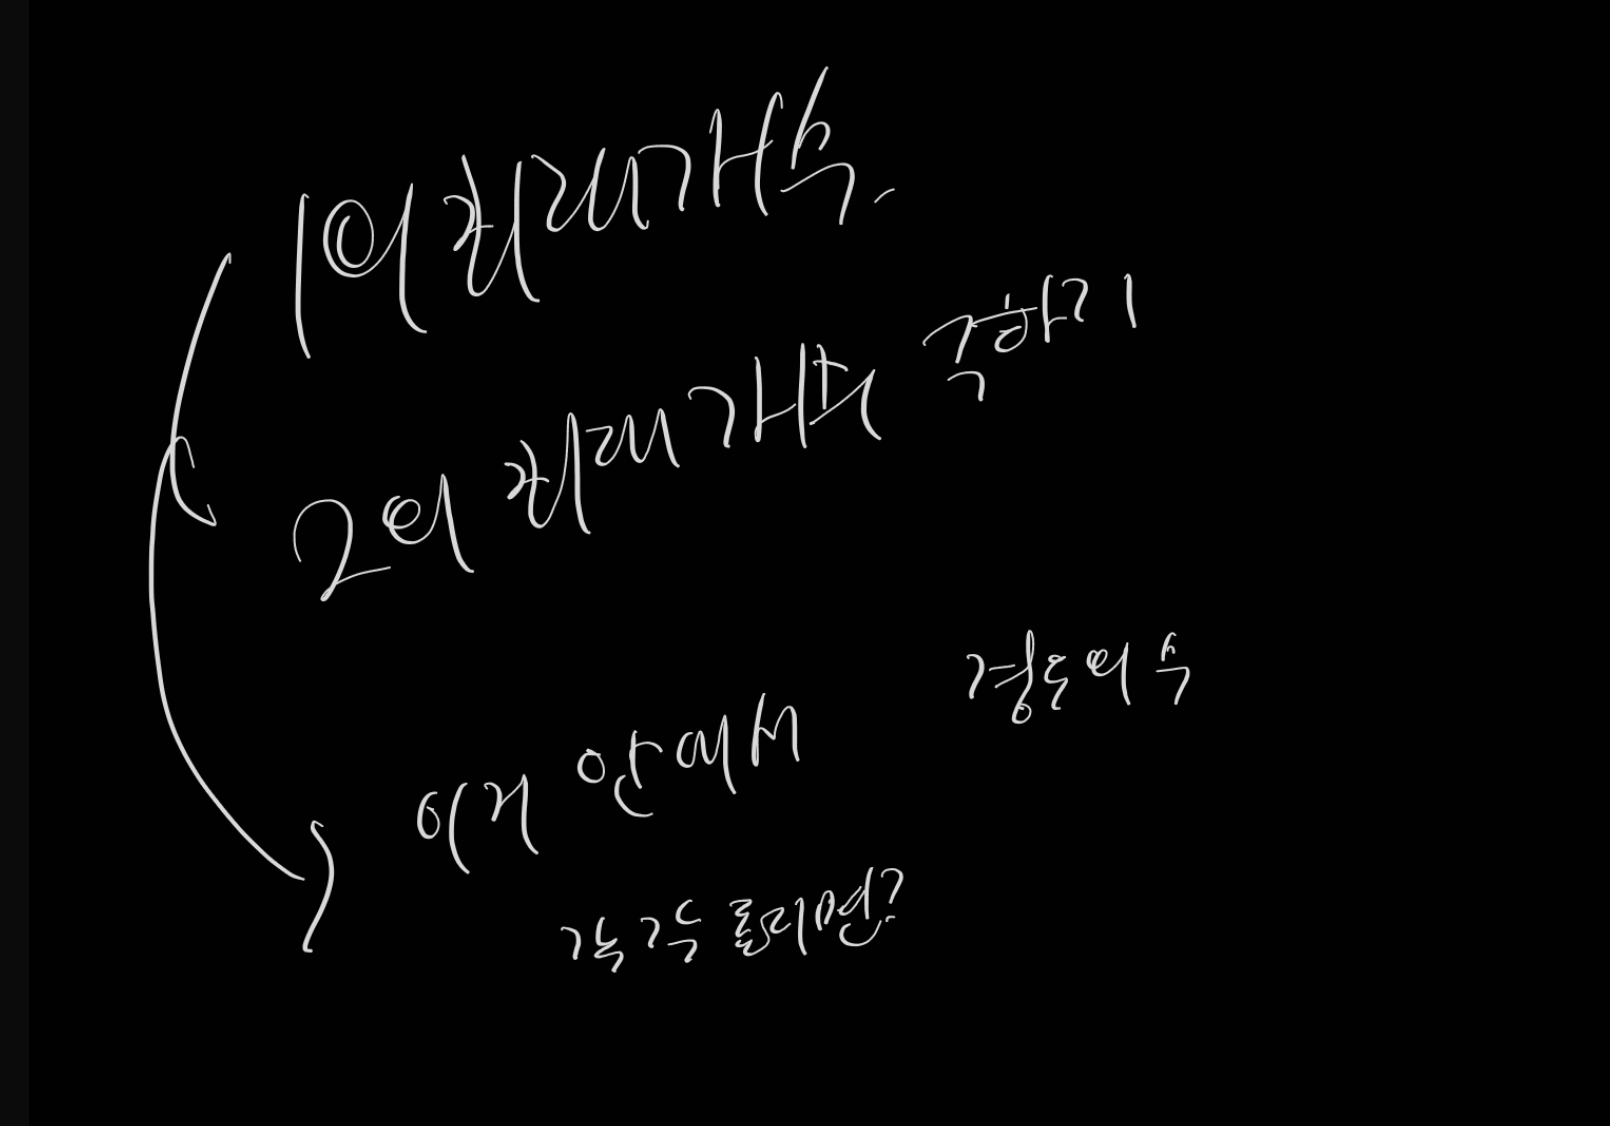 1의 최대개수.
2의 최대개수 구하기
경우의 수
이거 안에서
각각 돌리면?